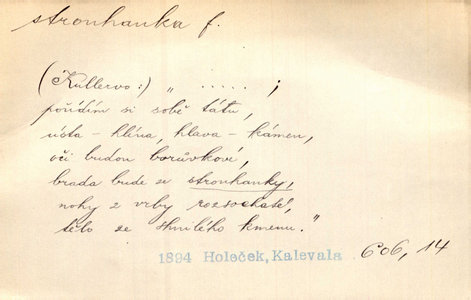 strouhanka f.
(Kullervo:) „ ..... ;
pořídím si sobě tátu,
ústa - hlína, hlava - kámen,
oči budou borůvkové,
brada bude ze strouhanky,
nohy z vrby rozsochaté,
tělo ze shnilého kmenu."
1894 Holeček, Kalevala 606, 14